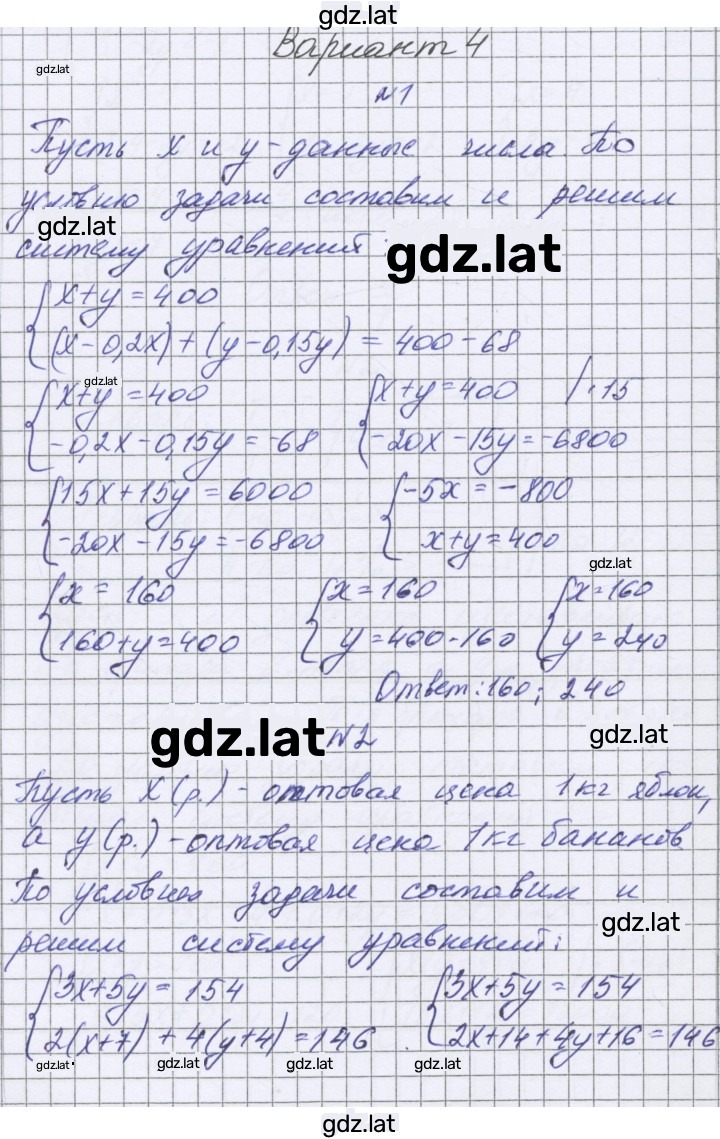 gdz.lat
Вариант 4
gdz.lat
№1
Пусть x и y - данные числа. По
условию задачи составим и решим
gdz.lat
систему уравнений:
gdz.lat
x+y=400
(x-0,2x)+(y-0,15y)=400-68
gdz.lat
x+y=400 x+y=400 /·15
-0,2x-0,15y=-68 -20x-15y=-6800
15x+15y=6000 -5x=-800
-20x-15y=-6800 x+y=400
gdz.lat
x=160 x=160 x=160
160+y=400 y=400-160 y=240
Ответ: 160; 240
gdz.lat №2 gdz.lat
Пусть x(р.) - оптовая цена 1 кг яблок,
а y(р.) - оптовая цена 1 кг бананов
По условию задачи составим и
gdz.lat
решим систему уравнений:
3x+5y=154 3x+5y=154
2(x+7)+4(y+4)=146 2x+14+4y+16=146
gdz.lat gdz.lat gdz.lat gdz.lat
gdz.lat